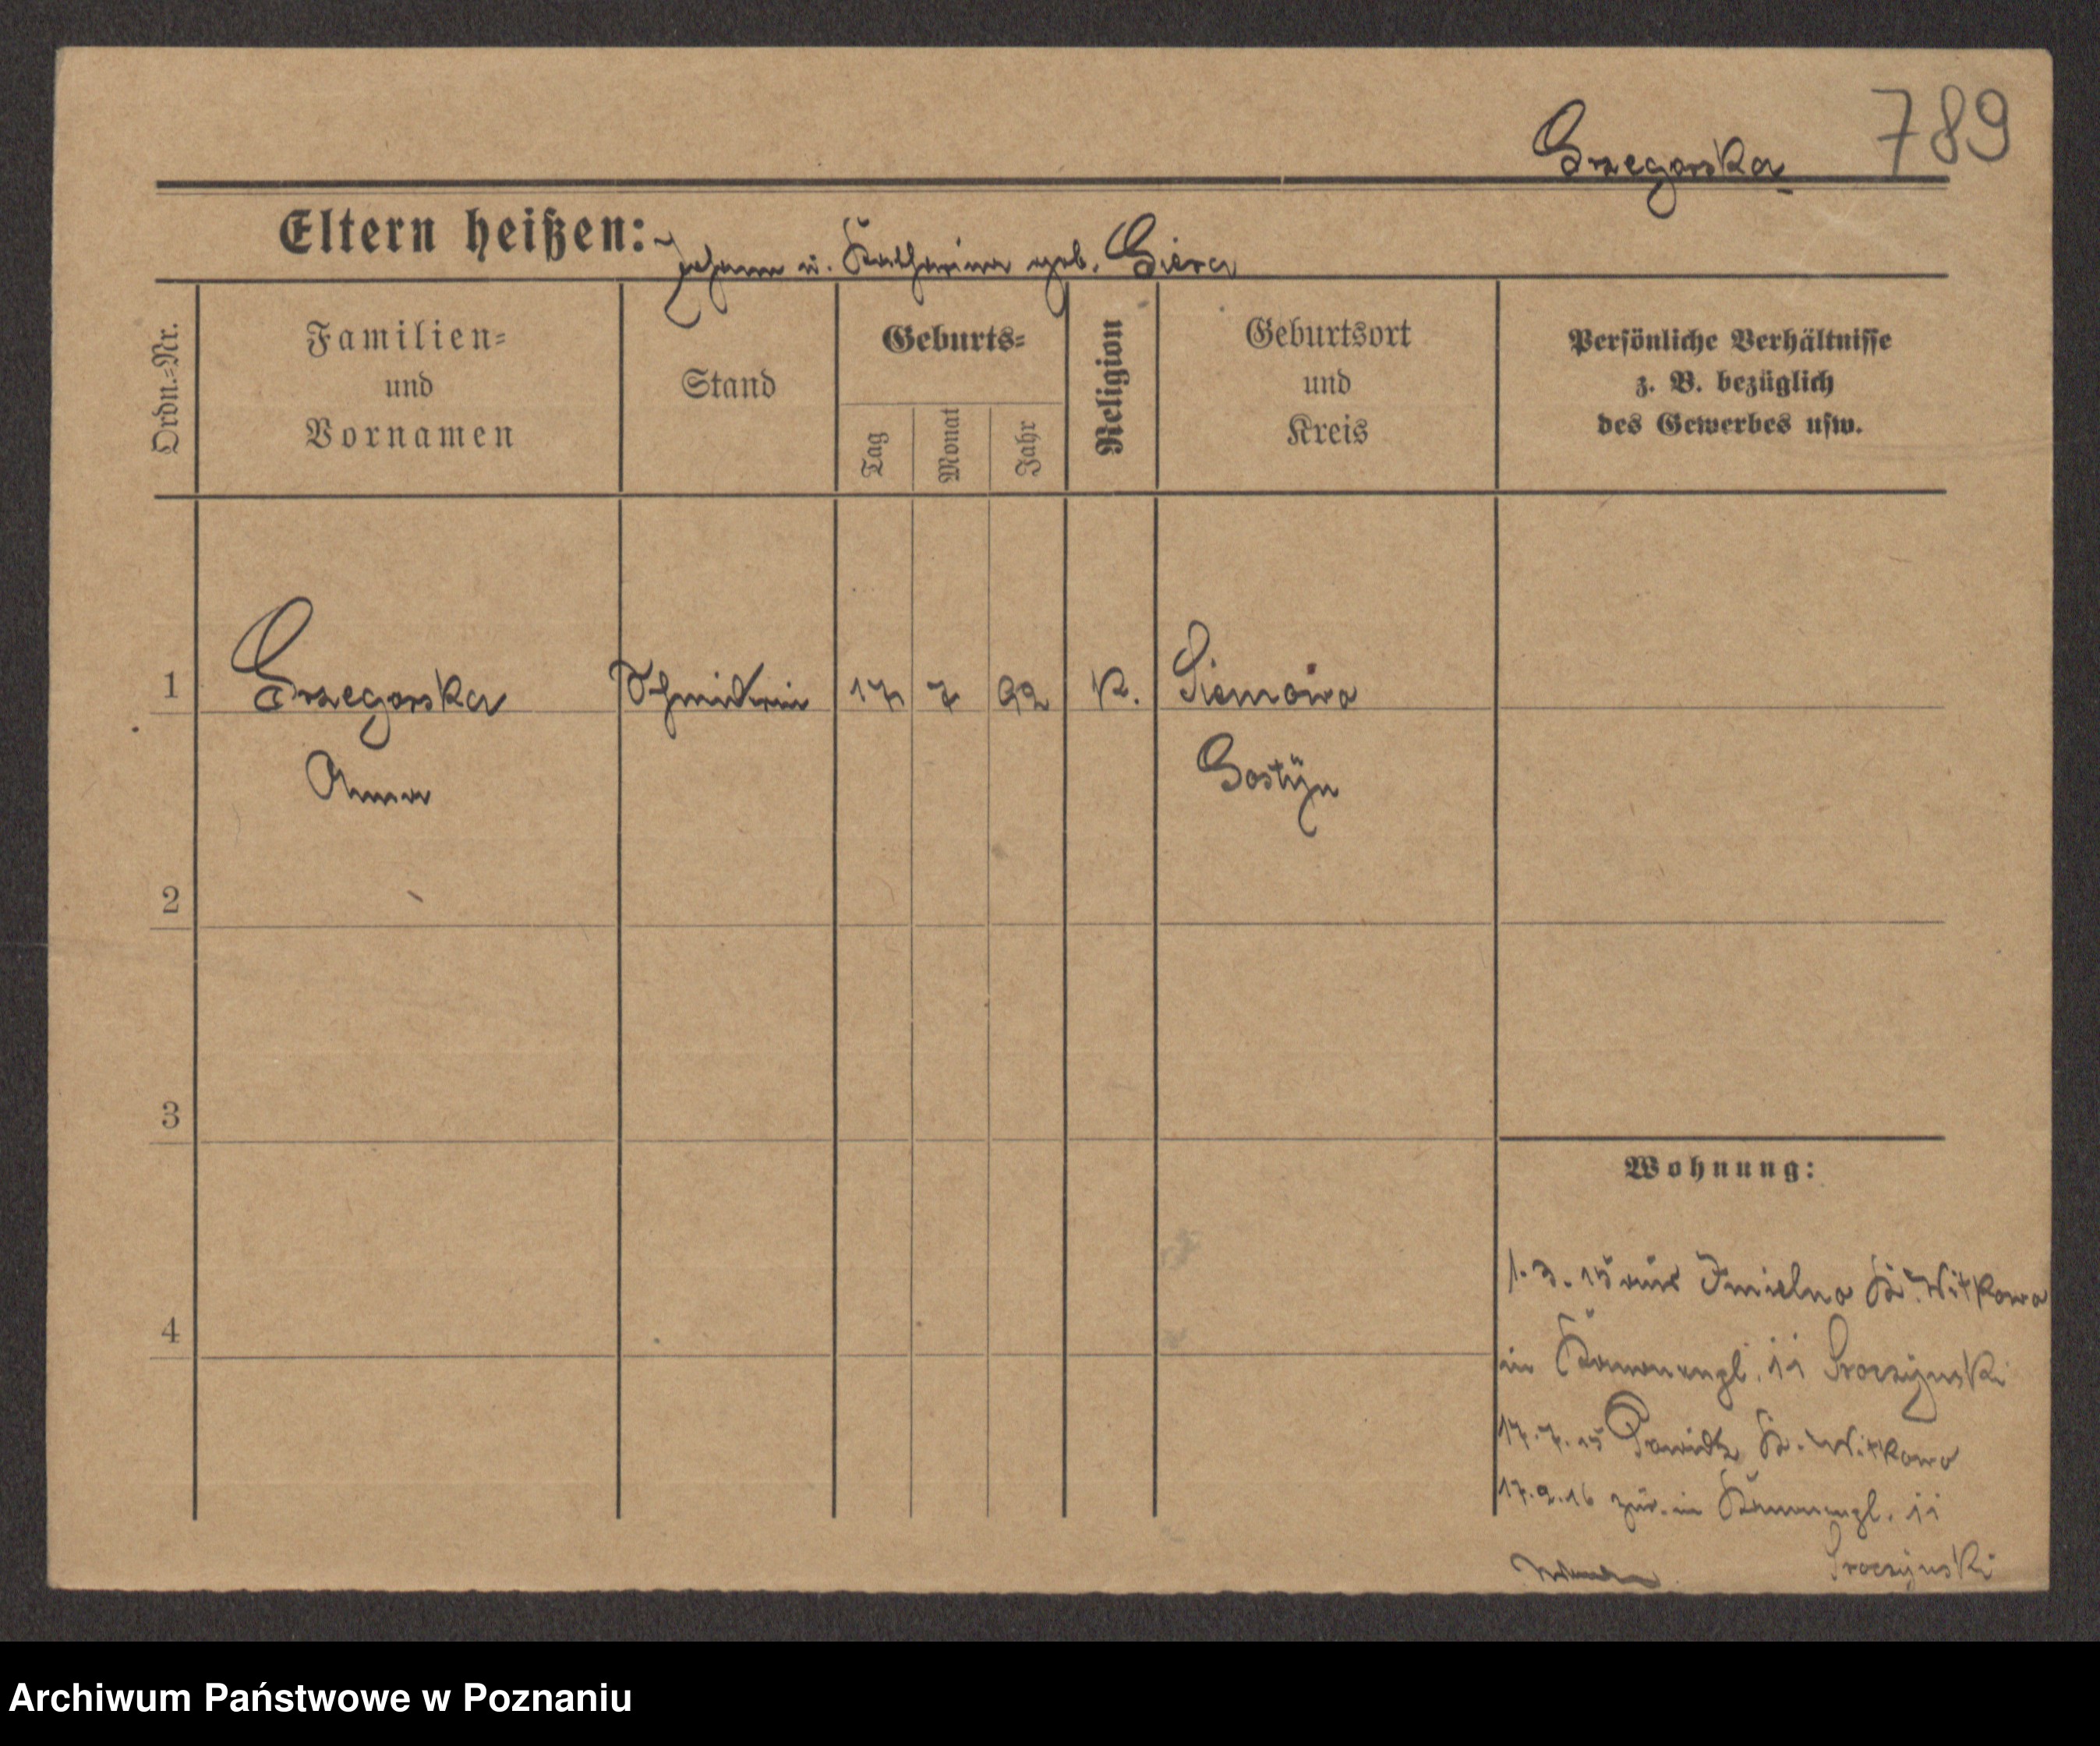 789
Grzegorska
Eltern heißen: Johann u. Katharina geb. Giera
Ordn.-Nr.
Familien-
und
Vornamen
Stand
Geburts-
Tag
Monat
Jahr
Religion
Geburtsort
und
Kreis
Persönliche Verhältnisse
z. B. bezüglich
des Gewerbes usw.
1 Grzegorska Schnitterin 17 7 92 K. Siemowo
Anna Gostÿn
2
3
4
Wohnung:
1. 3. 15 aus Imielno Kr. Witkowo
in 11 Sroczynski
17. 7. 15 Powidz Kr. Witkowo
17. 2. 16 zur. in 11
Sroczynski
Archiwum Państwowe w Poznaniu